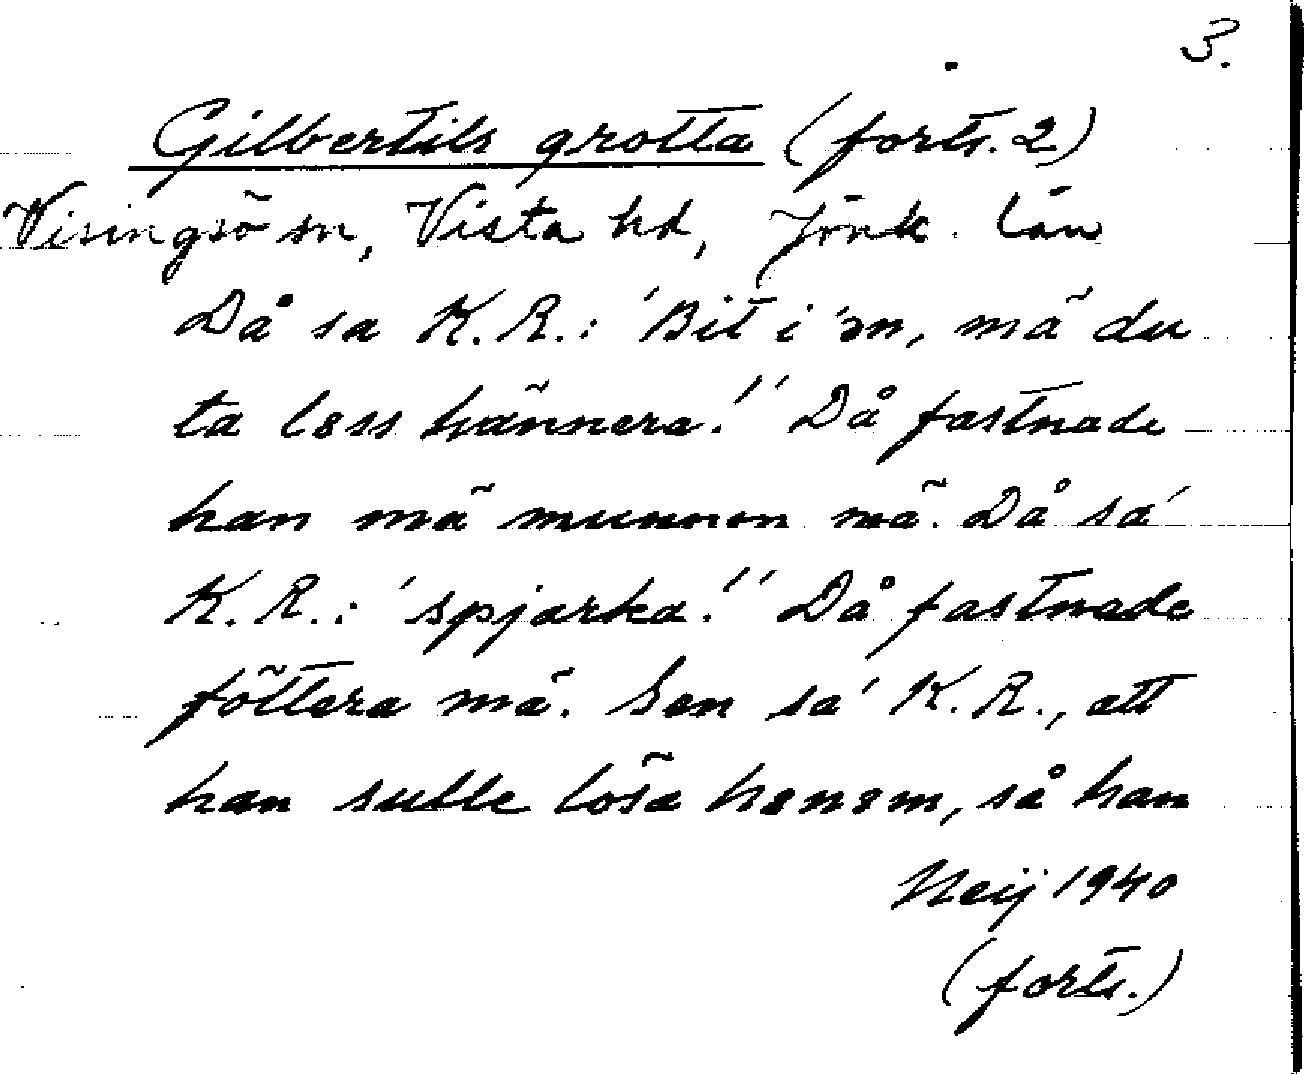 3.
Gilbertils grotta (forts. 2)
Visingsö sn, Vista hd, Jönk. län
Då sa K. R.: 'Bit i 'en, mä du
ta loss hännera!'' Då fastnade
han mä munnen mä. Då sa'
K. R.: 'spjarka!'' Då fastnade
föttera mä. Sen sa' K. R., att
han sulle lösa honom, så han
Neij 1940
(forts.)